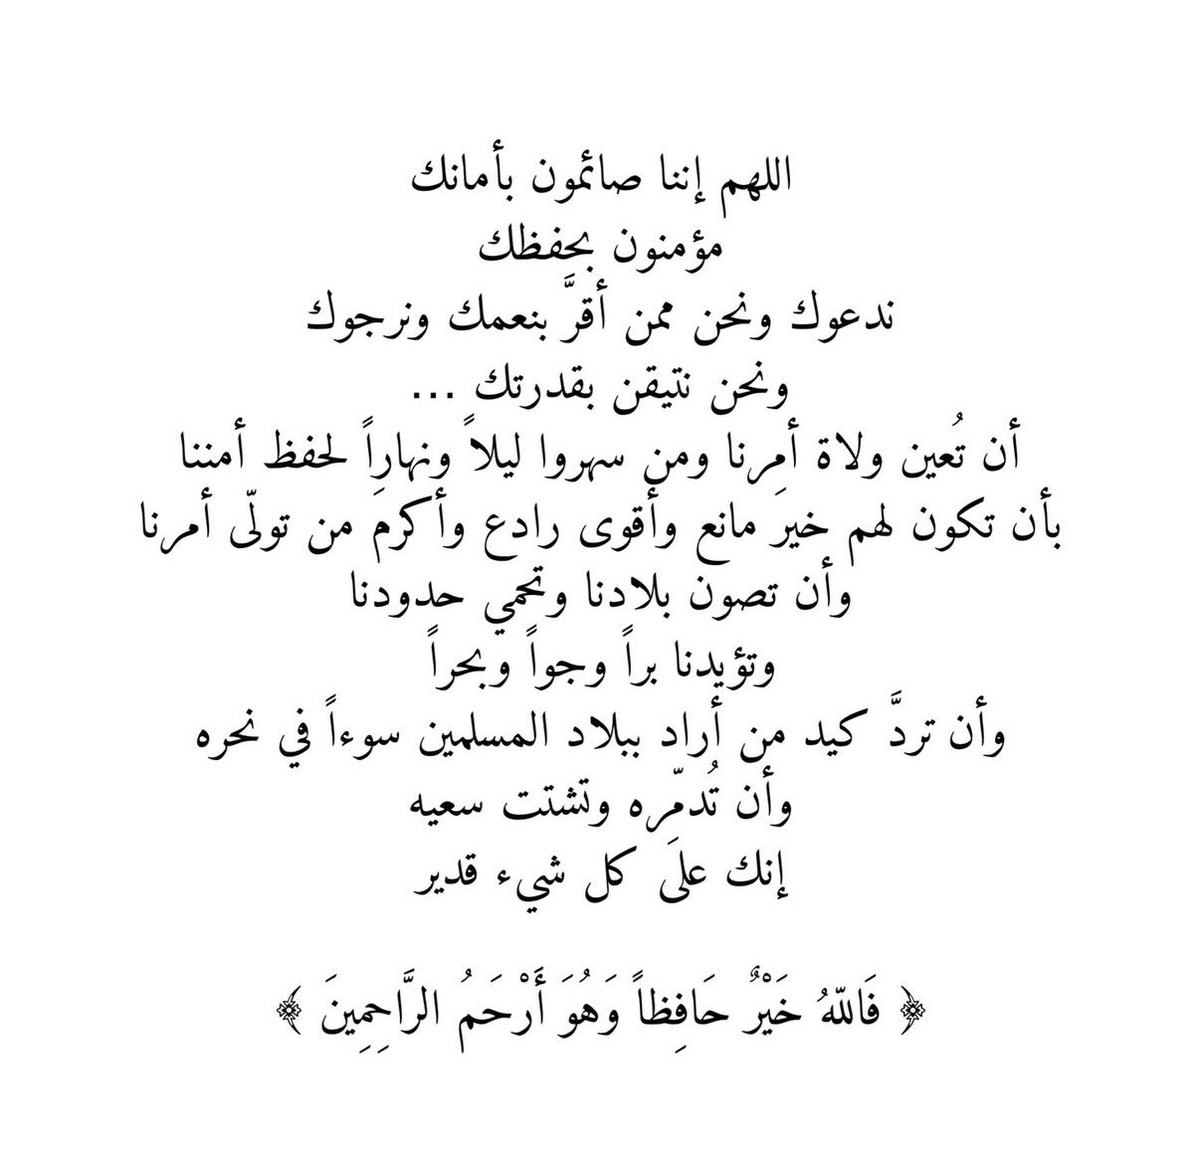 اللهم إننا صائمون بأمانك
مؤمنون بحفظك
ندعوك ونحن ممن أقرَّ بنعمك ونرجوك
ونحن نتيقن بقدرتك ...
أن تُعين ولاة أمرِنا ومن سهروا ليلاً ونهاراً لحفظ أمننا
بأن تكون لهم خيرَ مانع وأقوى رادع وأكرمَ من تولّى أمرنا
وأن تصون بلادنا وتحمي حدودنا
وتؤيدنا براً وجواً وبحراً
وأن تردَّ كيد من أراد ببلاد المسلمين سوءاً في نحره
وأن تُدمّره وتشتت سعيه
إنك على كل شيء قدير
﴿ فَاللّهُ خَيْرٌ حَافِظاً وَهُوَ أَرْحَمُ الرَّاحِمِينَ ﴾